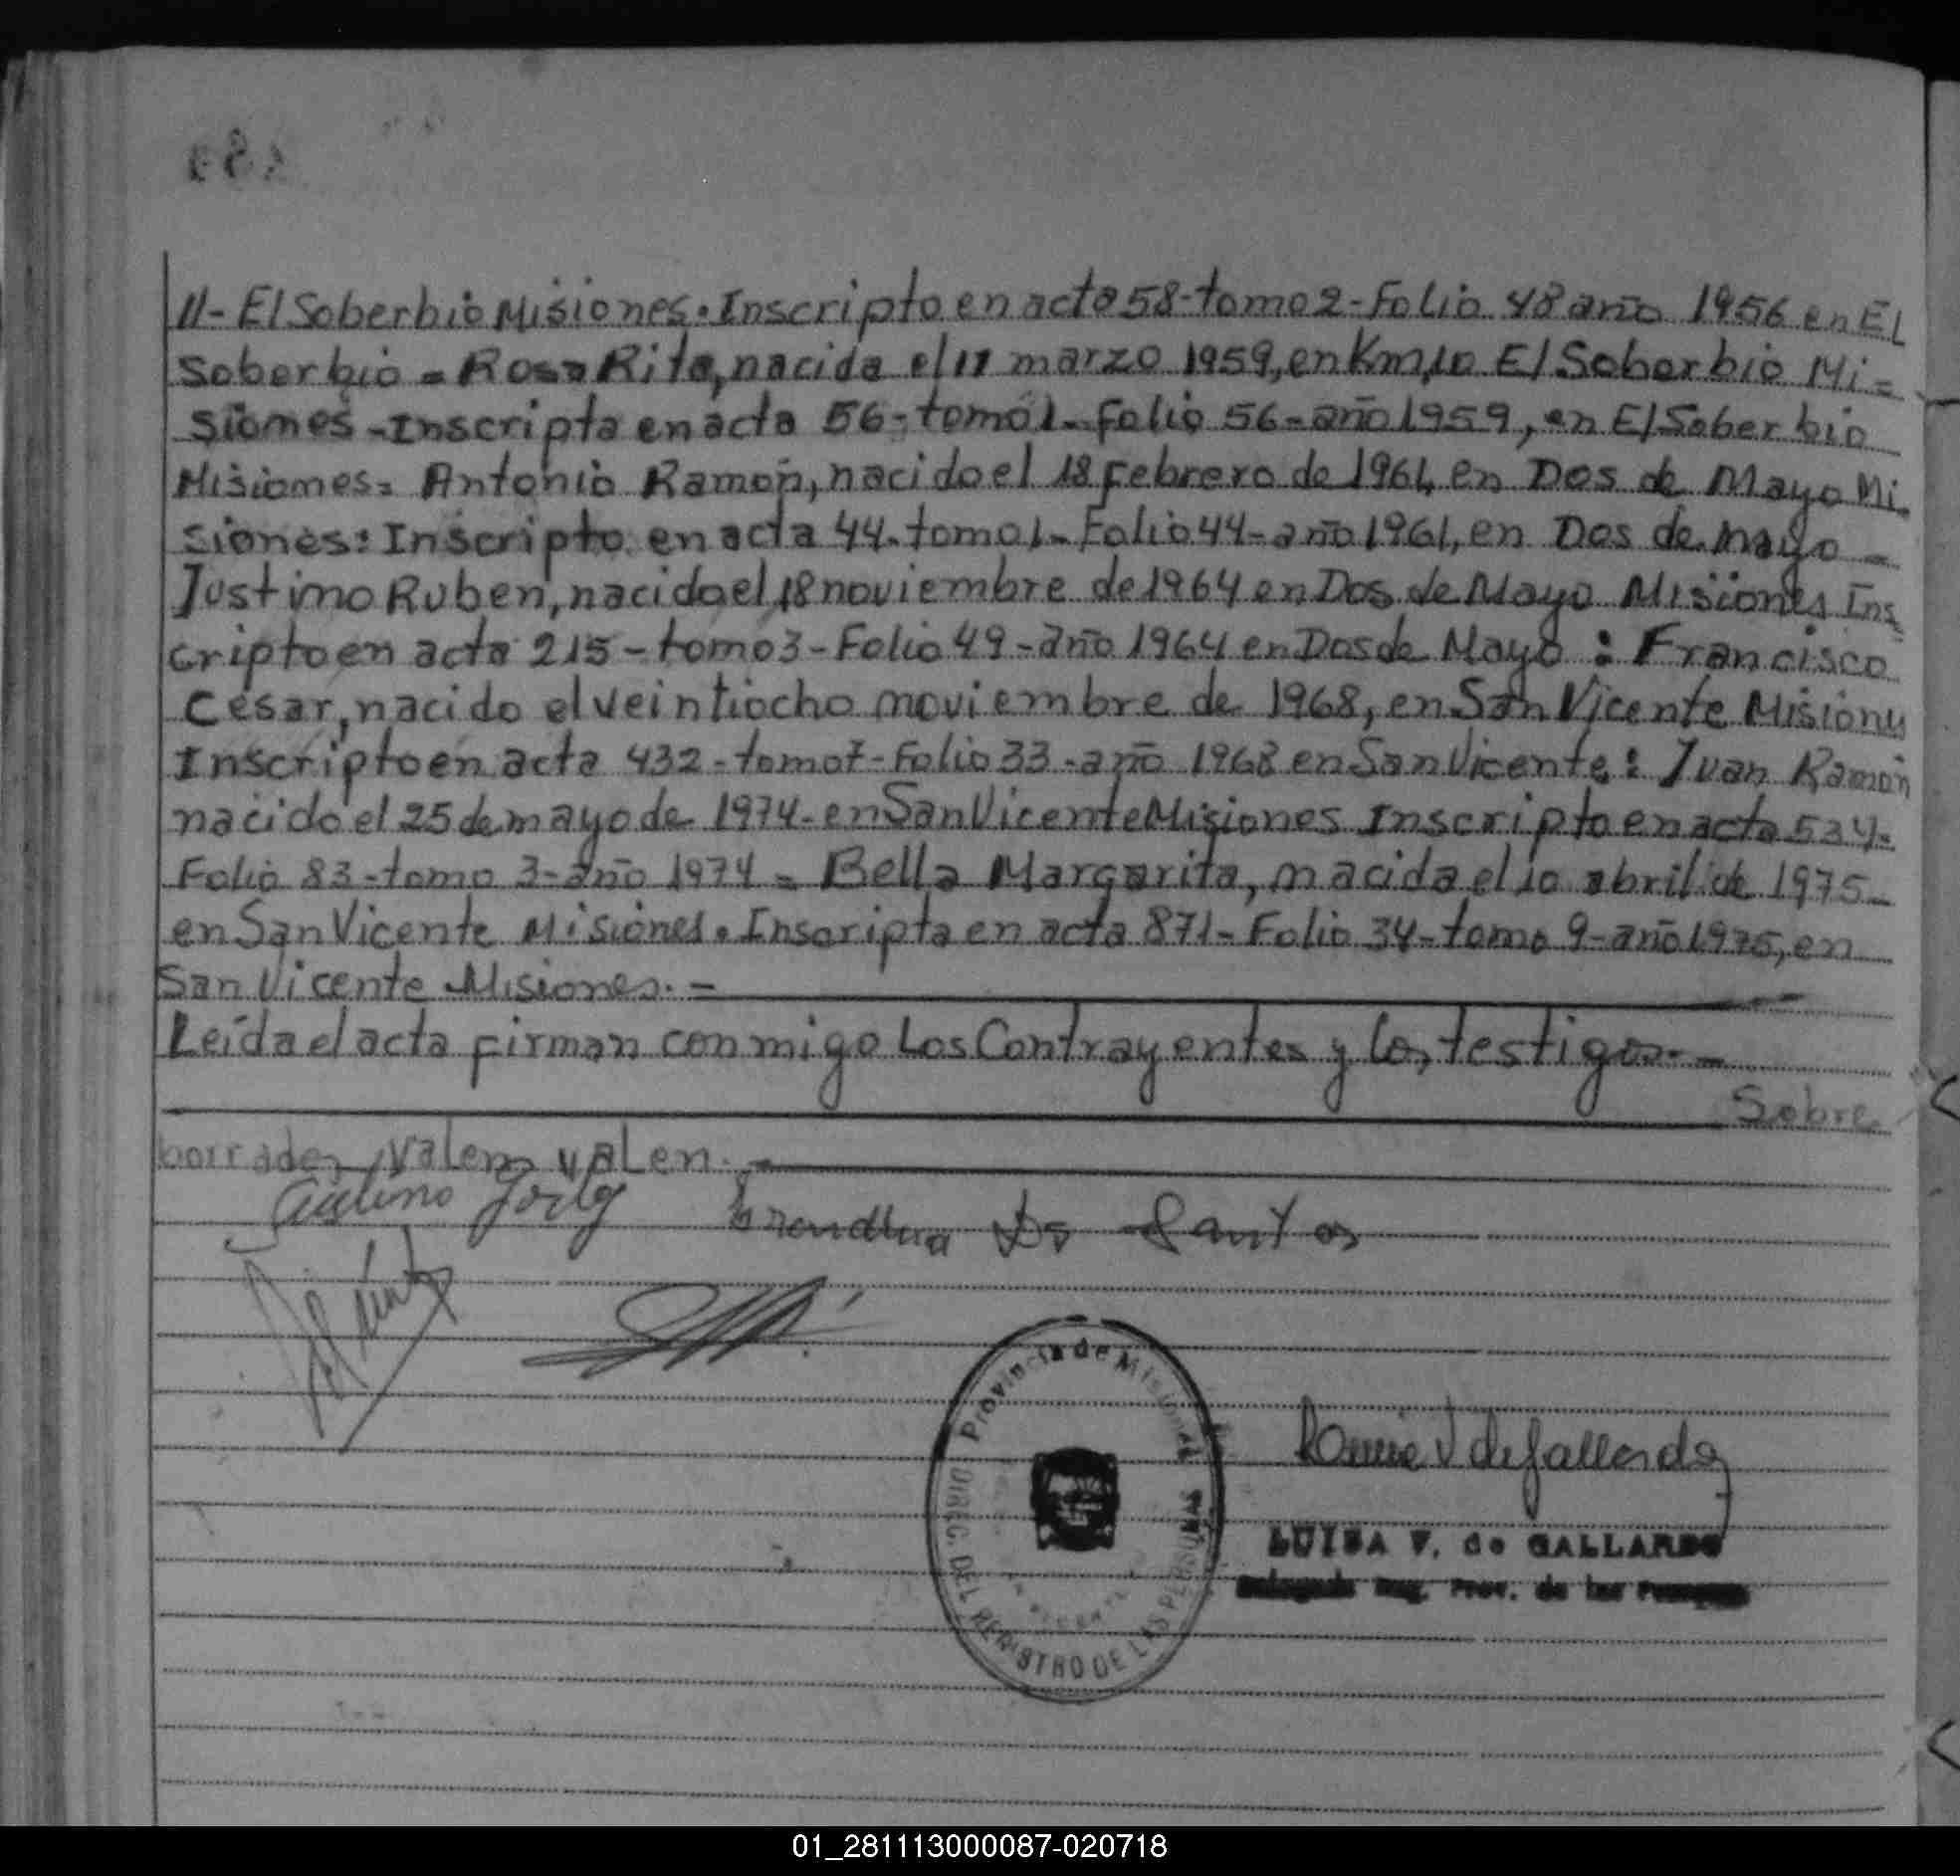 11- El Soberbio Misiones. Inscripto en acta 58-tomo 2-Folio 48 año 1956 en El
Soberbio = Rosa Rita, nacida el 11 marzo 1959, en Km, 10 El Soberbio Mi=
siones - Inscripta en acta 56-tomo 1-folio 56-año 1959, en El Soberbio
Misiones= Antonio Ramón, nacido el 18 Febrero de 1961, en Dos de Mayo Mi-
siones: Inscripto en acta 44-tomo 1-Folio 44-año 1961, en Dos de mayo -
Justino Ruben, nacido el 18 noviembre de 1964 en Dos de Mayo Misiones Ins
cripto en acta 215-tomo 3-Folio 49-año 1964 en Dos de Mayo: Francisco
César, nacido el veintiocho noviembre de 1968, en San Vicente Misiones
Inscripto en acta 432-tomo 7-Folio 33-año 1968 en San Vicente: Juan Ramón
nacido el 25 de mayo de 1974-en San Vicente Misiones Inscripto en acta 534-
Folio 83-tomo 3-año 1974 = Bella Margarita, nacida el 10 abril de 1975-
en San Vicente Misiones. Inscripta en acta 871-Folio 34-tomo 9-año 1975, en
San Vicente Misiones.-
Leída el acta firman conmigo Los Contrayentes y los testigos.-
Sobre
borrados valen, valen.-
Dos Santos
Provincia de Misiones
DIREC. DEL REGISTRO DE LAS PERSONAS
V de Gallardo
LUISA V. de GALLARDO
Reg. Prov. de las Personas
01_281113000087-020718